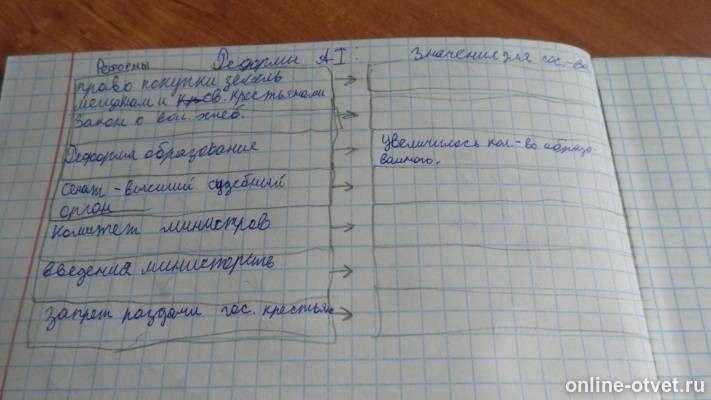 Реформы АI:
Значения для гос-ва
право покупки земель
мещанам и св. крестьянами
Закон о вол. хлеб.
Реформа образование
Увеличилось кол.-во образо
ванного.
Сенат - высший судебный
орган
Комитет министров
введения министерств
Запрет раздачи гос. крестьян
online-otvet.ru